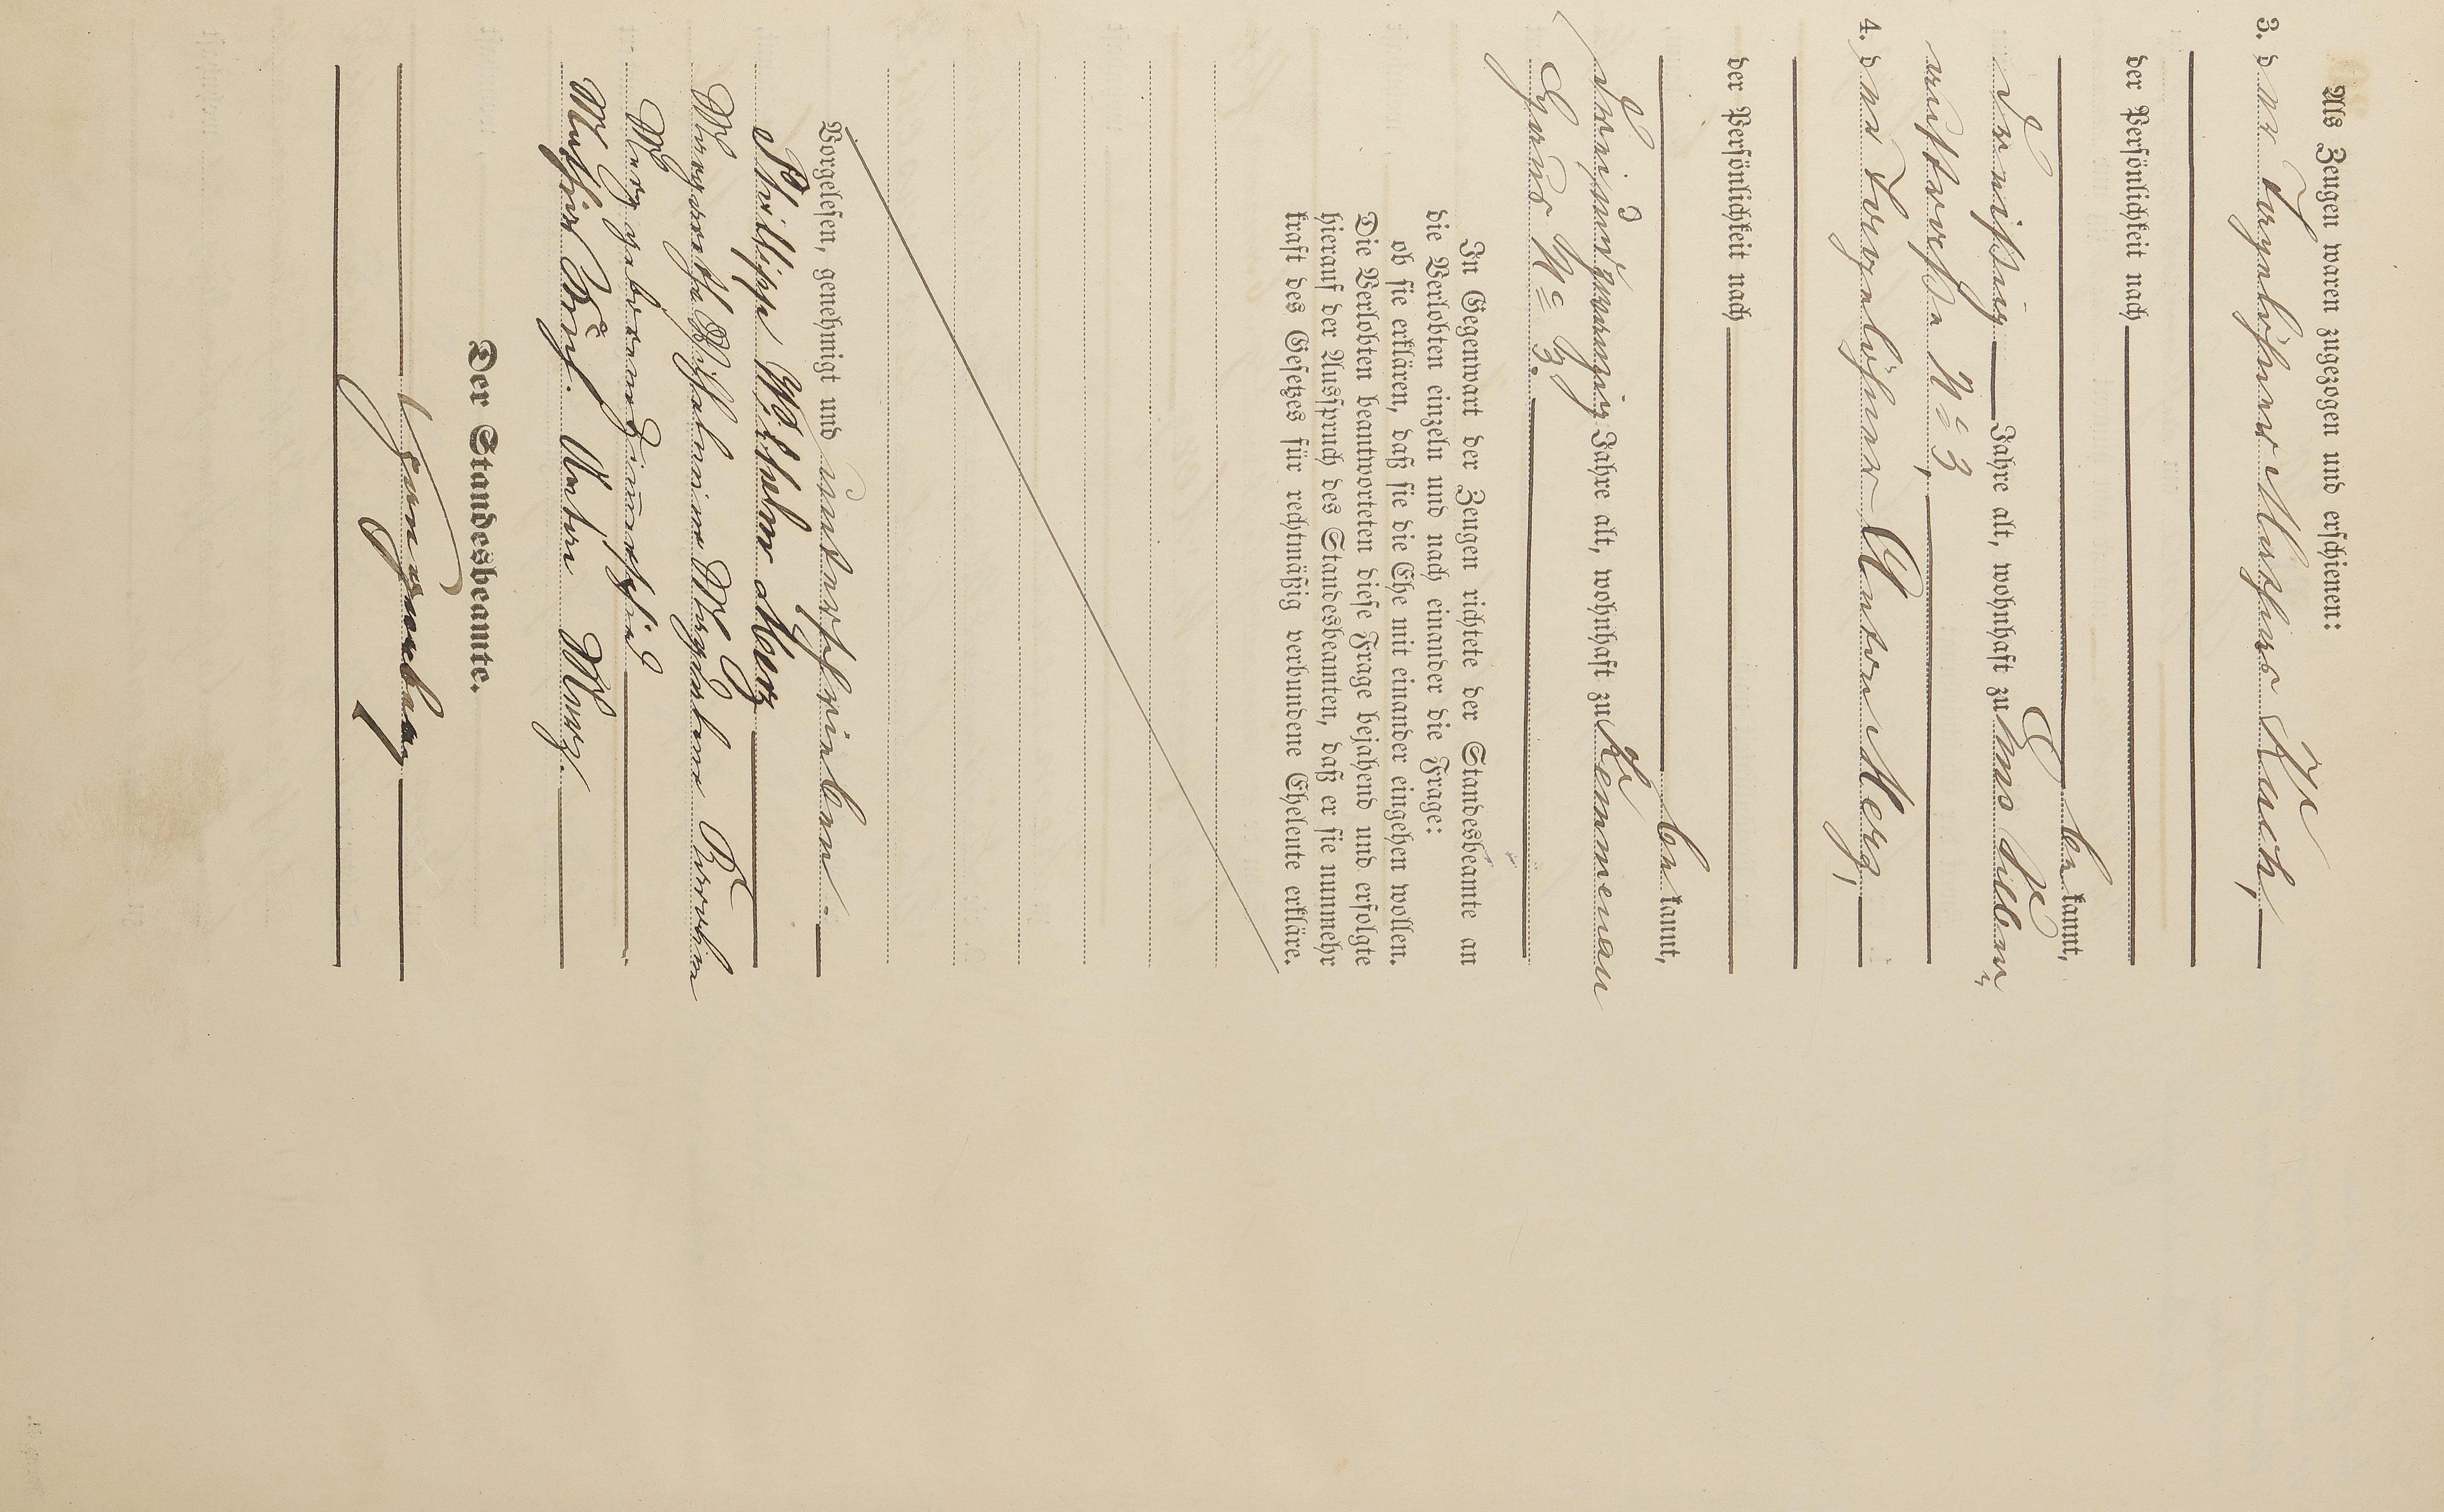 Als Zeugen waren zugezogen und erschienen:
3. der Tagelöhner Mathias Kuch,
der Persönlichkeit nach
bekannt,
dreißig Jahre alt, wohnhaft zu Ems Silberau
straße No 3,
4. der Tagelöhner Anton Merz,
der Persönlichkeit nach
bekannt,
dreiundzwanzig Jahre alt, wohnhaft zu Kemmenau
Haus No 3.
In Gegenwart der Zeugen richtete der Standesbeamte an
die Verlobten einzeln und nach einander die Frage:
ob sie erklären, daß sie die Ehe mit einander eingehen wollen.
Die Verlobten beantworteten diese Frage bejahend und erfolgte
hierauf der Ausspruch des Standesbeamten, daß er sie nunmehr
kraft des Gesetzes für rechtmäßig verbundene Eheleute erkläre.
Vorgelesen, genehmigt und unterschrieben.
Phillipp Wilhelm Merz
Margaretha Wilhelmine
Merz geborene
Mathias Anton Merz.
Der Standesbeamte.